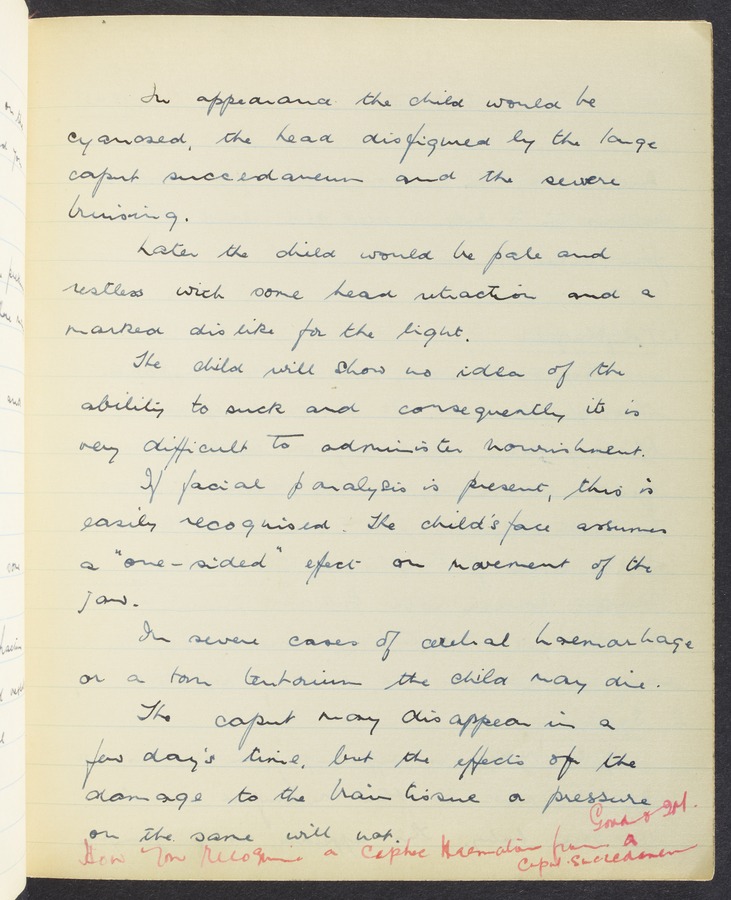 In appearance the child would be
cyanosed, the head disfigured by the large
caput succedaneum and the severe
bruising.
Later the child would be pale and
restless with some head retraction and a
marked dislike for the light.
The child will show no idea of the
ability to suck and consequently it is
very difficult to administer nourishment.
If facial paralysis is present, this is
easily recognised. The child's face assumes
a "one-sided" effect on movement of the
jaw.
In severe cases of cerebral haemorrhage
or a torn tentorium the child may die.
The caput may disappear in a
few day's time, but the effects of the
damage to the brain tissue or pressure
on the same will not.
Good
How you recognise a cephal Haematoma from a
caput succedaneum